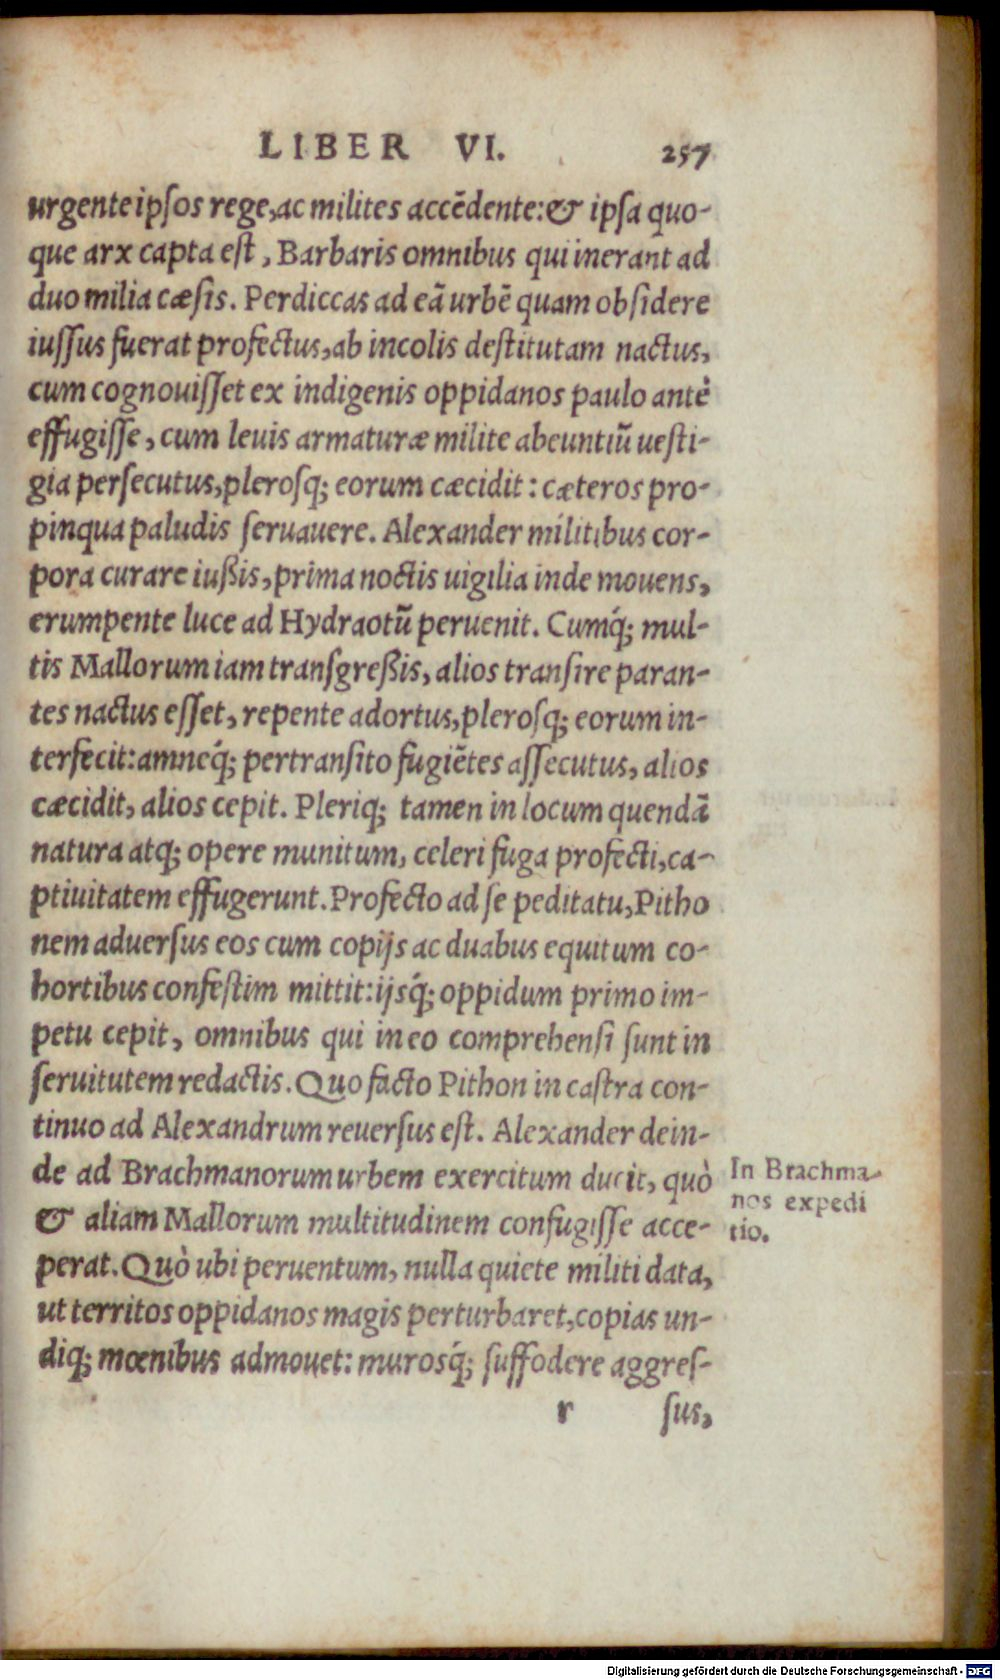 LIBER VI. 257
urgente ipſos rege, ac milites accēdente: & ipſa quo-
que arx capta eſt, Barbaris omnibus qui inerant ad
duo milia cæſis. Perdiccas ad eā urbē quam obſidere
iuſſus fuerat profectus, ab incolis deſtitutam nactus,
cum cognouiſſet ex indigenis oppidanos paulo antè
effugiſſe, cum leuis armaturæ milite abeuntiū ueſti-
gia perſecutus, pleroſq; eorum cæcidit: cæteros pro-
pinqua paludis ſeruauere. Alexander militibus cor-
pora curare iußis, prima noctis uigilia inde mouens,
erumpente luce ad Hydraotū peruenit. Cumq́; mul-
tis Mallorum iam tranſgreßis, alios tranſire paran-
tes nactus eſſet, repente adortus, pleroſq; eorum in-
terfecit: amneq́; pertranſito fugiētes aſſecutus, alios
cæcidit, alios cepit. Pleriq; tamen in locum quendā
natura atq; opere munitum, celeri fuga profecti, ca-
ptiuitatem effugerunt. Profecto ad ſe peditatu, Pitho
nem aduerſus eos cum copijs ac duabus equitum co-
hortibus confeſtim mittit: ijsq́; oppidum primo im-
petu cepit, omnibus qui in eo comprehenſi ſunt in
ſeruitutem redactis. Quo facto Pithon in caſtra con-
tinuo ad Alexandrum reuerſus eſt. Alexander dein-
de ad Brachmanorum urbem exercitum ducit, quò
& aliam Mallorum multitudinem confugiſſe acce-
perat. Quò ubi peruentum, nulla quiete militi data,
ut territos oppidanos magis perturbaret, copias un-
diq; mœnibus admouet: muroſq́; ſuffodere aggreſ-
r ſus,
In Brachma-
nos expedi
tio.
Digitalisierung gefördert durch die Deutsche Forschungsgemeinschaft - DFG